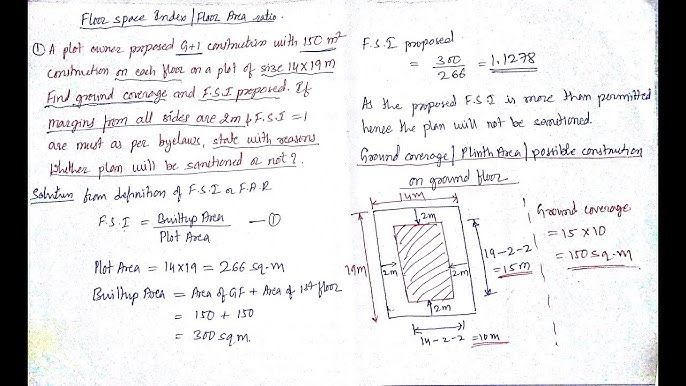 Floor space Index / Floor Area ratio.
① A plot owner proposed G+1 construction with 150 m²
construction on each floor on a plot of size 14×19 m
Find ground coverage and F.S.I proposed. If
margins from all sides are 2m & F.S.I = 1
are must as per byelaws, state with reasons
whether plan will be sanctioned or not?
Solution from definition of F.S.I or F.A.R
F.S.I = Builtup Area / Plot Area — ①
Plot Area = 14×19 = 266 sq.m
Builtup Area = Area of GF + Area of 1st floor
= 150 + 150
= 300 sq.m.
F.S.I proposed
= 300 / 266 = 1.1278
As the proposed F.S.I is more than permitted
hence the plan will not be sanctioned.
Ground coverage / Plinth Area / possible construction
on ground floor
14m
2m
19m
2m
2m
2m
19-2-2
= 15m
14-2-2 = 10m
Ground coverage
= 15 × 10
= 150 sq.m